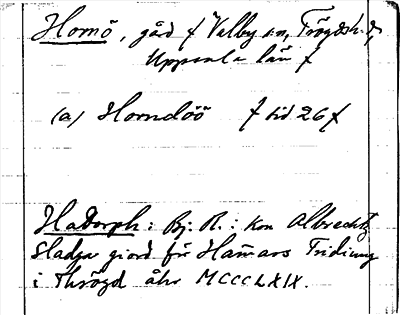 Hornö, gård f Valby sn, Trögds hd,
Uppsala län f
(a) Horndöö f sid 26 f
Hadorph: Bj. R.: Kon Albrechtz
Stadga giord för Hamars Tridiung
i Thrögd åhr MCCCLXIX.